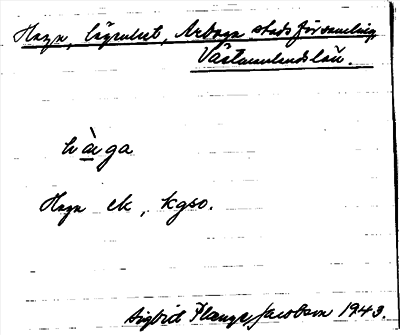 Haga, lägenhet, Arboga stadsförsamling
Västmanlands län.
hàga
Haga ek, kgso.
Sigbrit Plænge Jacobson 1943.